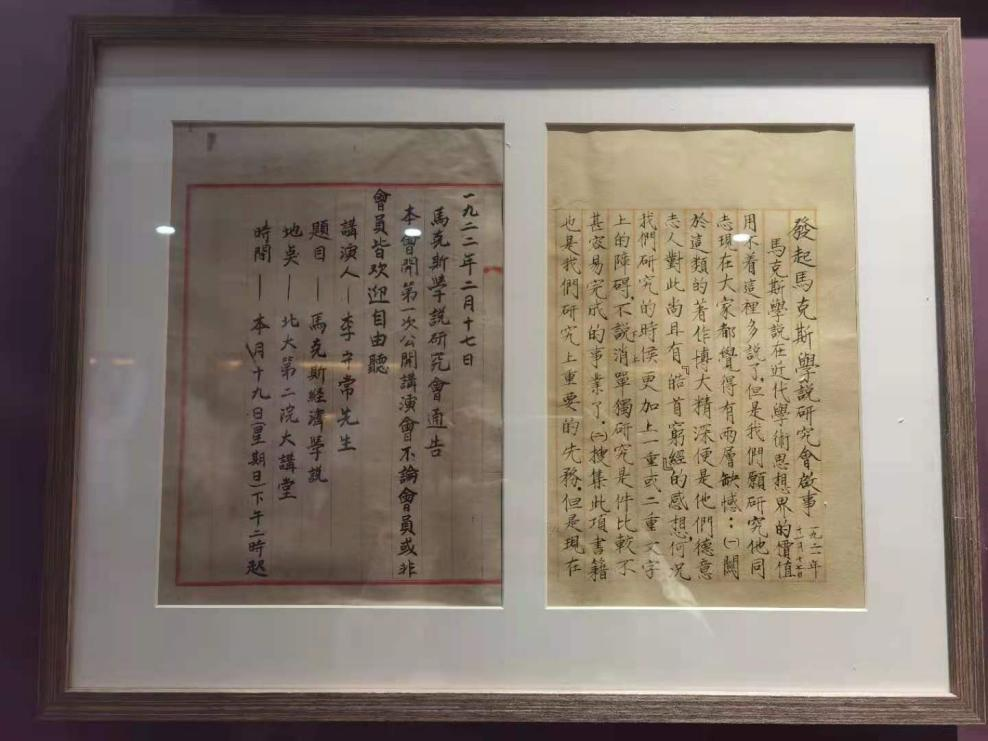 發起馬克斯學説研究會啟事
一九二一年
十一月十七日
馬克斯學説在近代學術思想界的價值
用不着這裡多説了,但是我們願研究他同
志現在大家都覺得有兩層缺憾:㈠關
於這類的著作博大精深便是他們德意
志人對此尚且有『皓首窮經』的感想,何况
我們研究的時候更加上一重或二重文字
上的障碍,不説消單獨研究是件比較不
甚容易完成的事業了.㈡搜集此項書籍
也是我們研究上重要的先務.但是現在
一九二二年二月十七日
馬克斯學説研究會通告
本會開第一次公開講演會不論會員或非
會員皆欢迎自由聽
講演人—李守常先生
題目—馬克斯經濟學説
地奌—北大第二院大講堂
時間—本月十九日(星期日)下午二時起